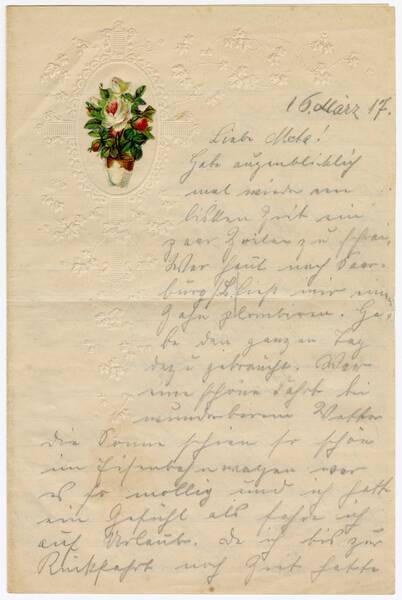 16. März 17.
Liebe Meta!
Habe augenblicklich
mal wieder ein
bißchen Zeit ein
paar Zeilen zu schrei-
War heut nach Saar-
burg ließ mir einen
Zahn plombieren. Ha-
be den ganzen Tag
dazu gebraucht. War
eine schöne Fahrt bei
wunderbarem Wetter
die Sonne schien so schön
im Eisenbahnwagen war
es so mollig und ich hatte
ein Gefühl als fahre ich
auf Urlaub. Da ich bis zur
Rückfahrt noch Zeit hatte